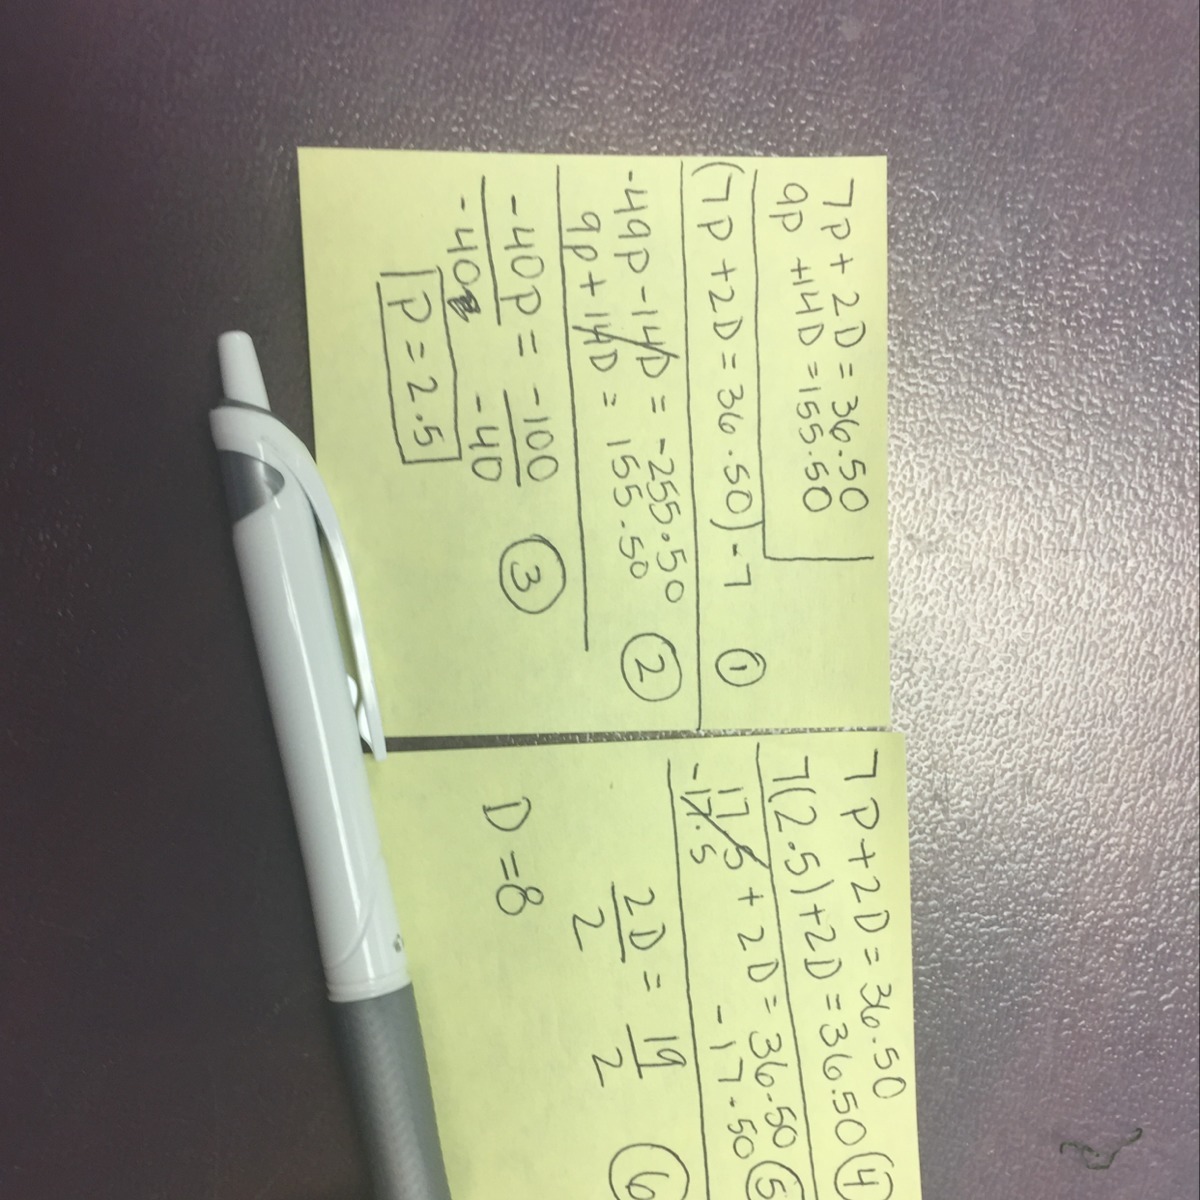 7P + 2D = 36.50
9P + 14D = 155.50
(7P + 2D = 36.50) -7 ①
-49P - 14D = -255.50
9P + 14D = 155.50 ②
-40P = -100 ③
-40 -40
P = 2.5
7P + 2D = 36.50
7(2.5) + 2D = 36.50 ④
17.5 + 2D = 36.50 ⑤
-17.5 -17.50
2D = 19 ⑥
2 2
D = 8